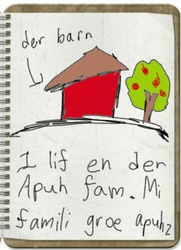 der barn
I lif en der
Apuh fam. Mi
famili groe apuhz